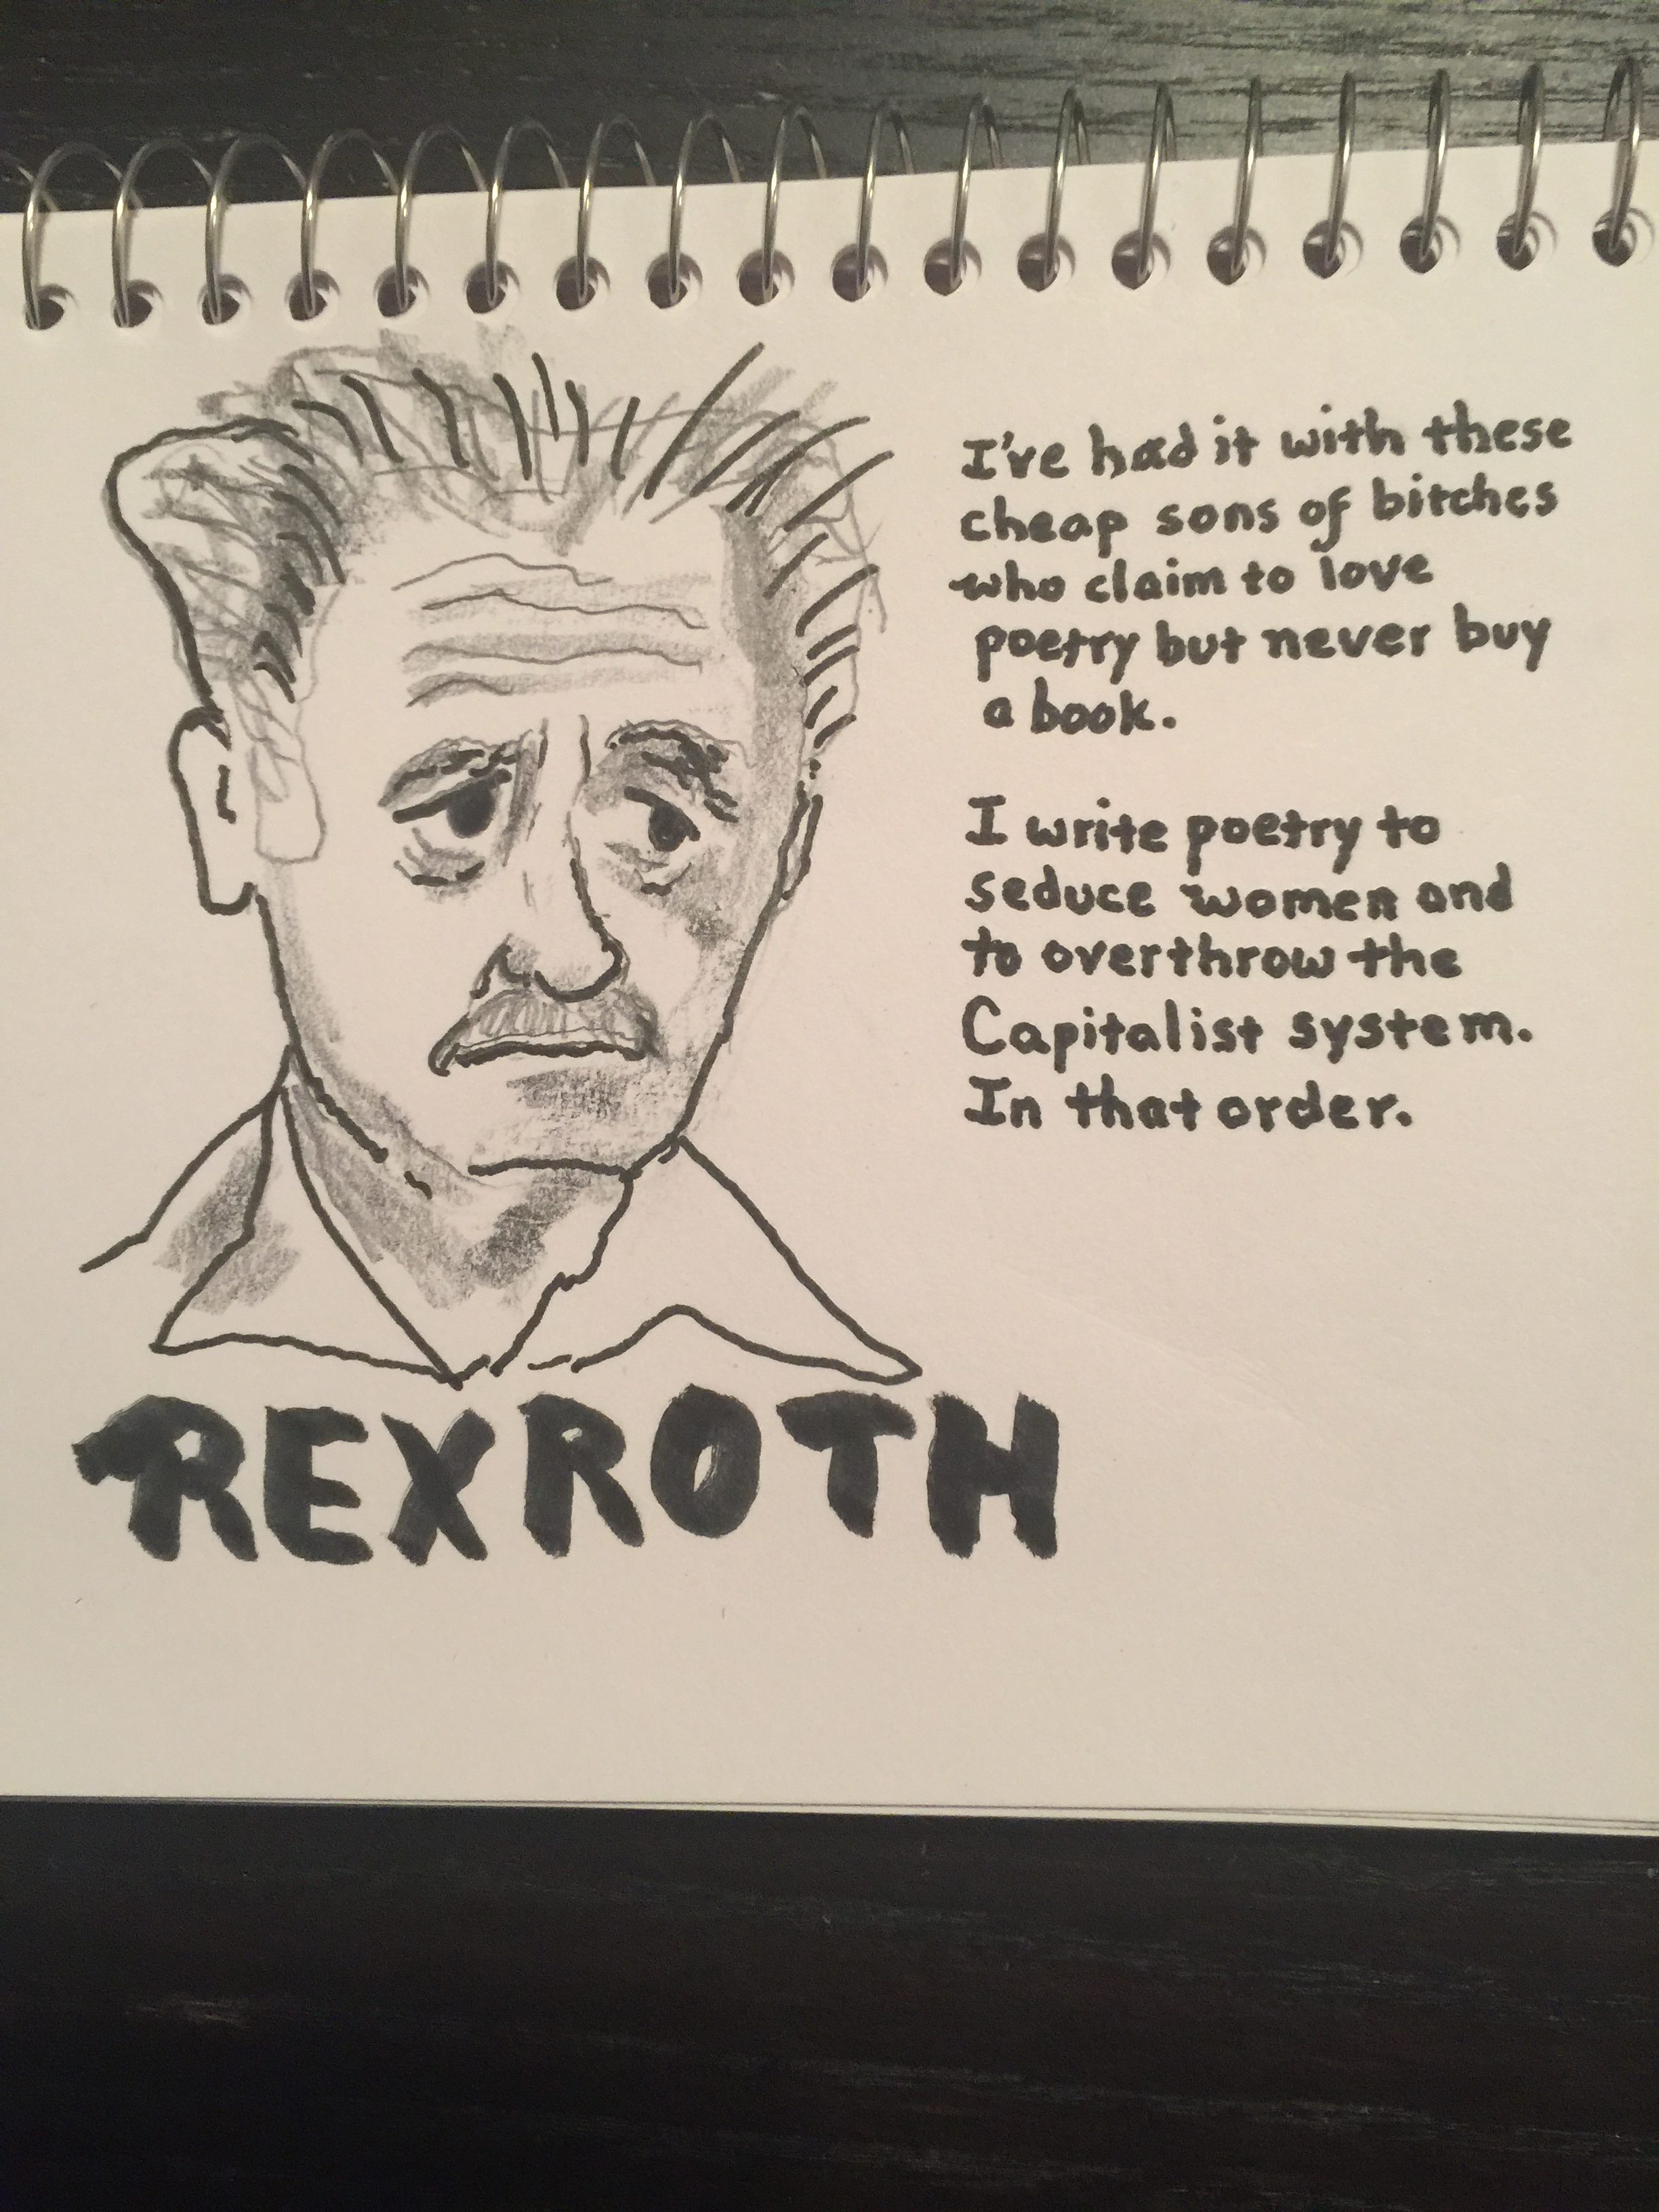 I've had it with these
cheap sons of bitches
who claim to love
poetry but never buy
a book.
I write poetry to
seduce women and
to overthrow the
Capitalist system.
In that order.
REXROTH